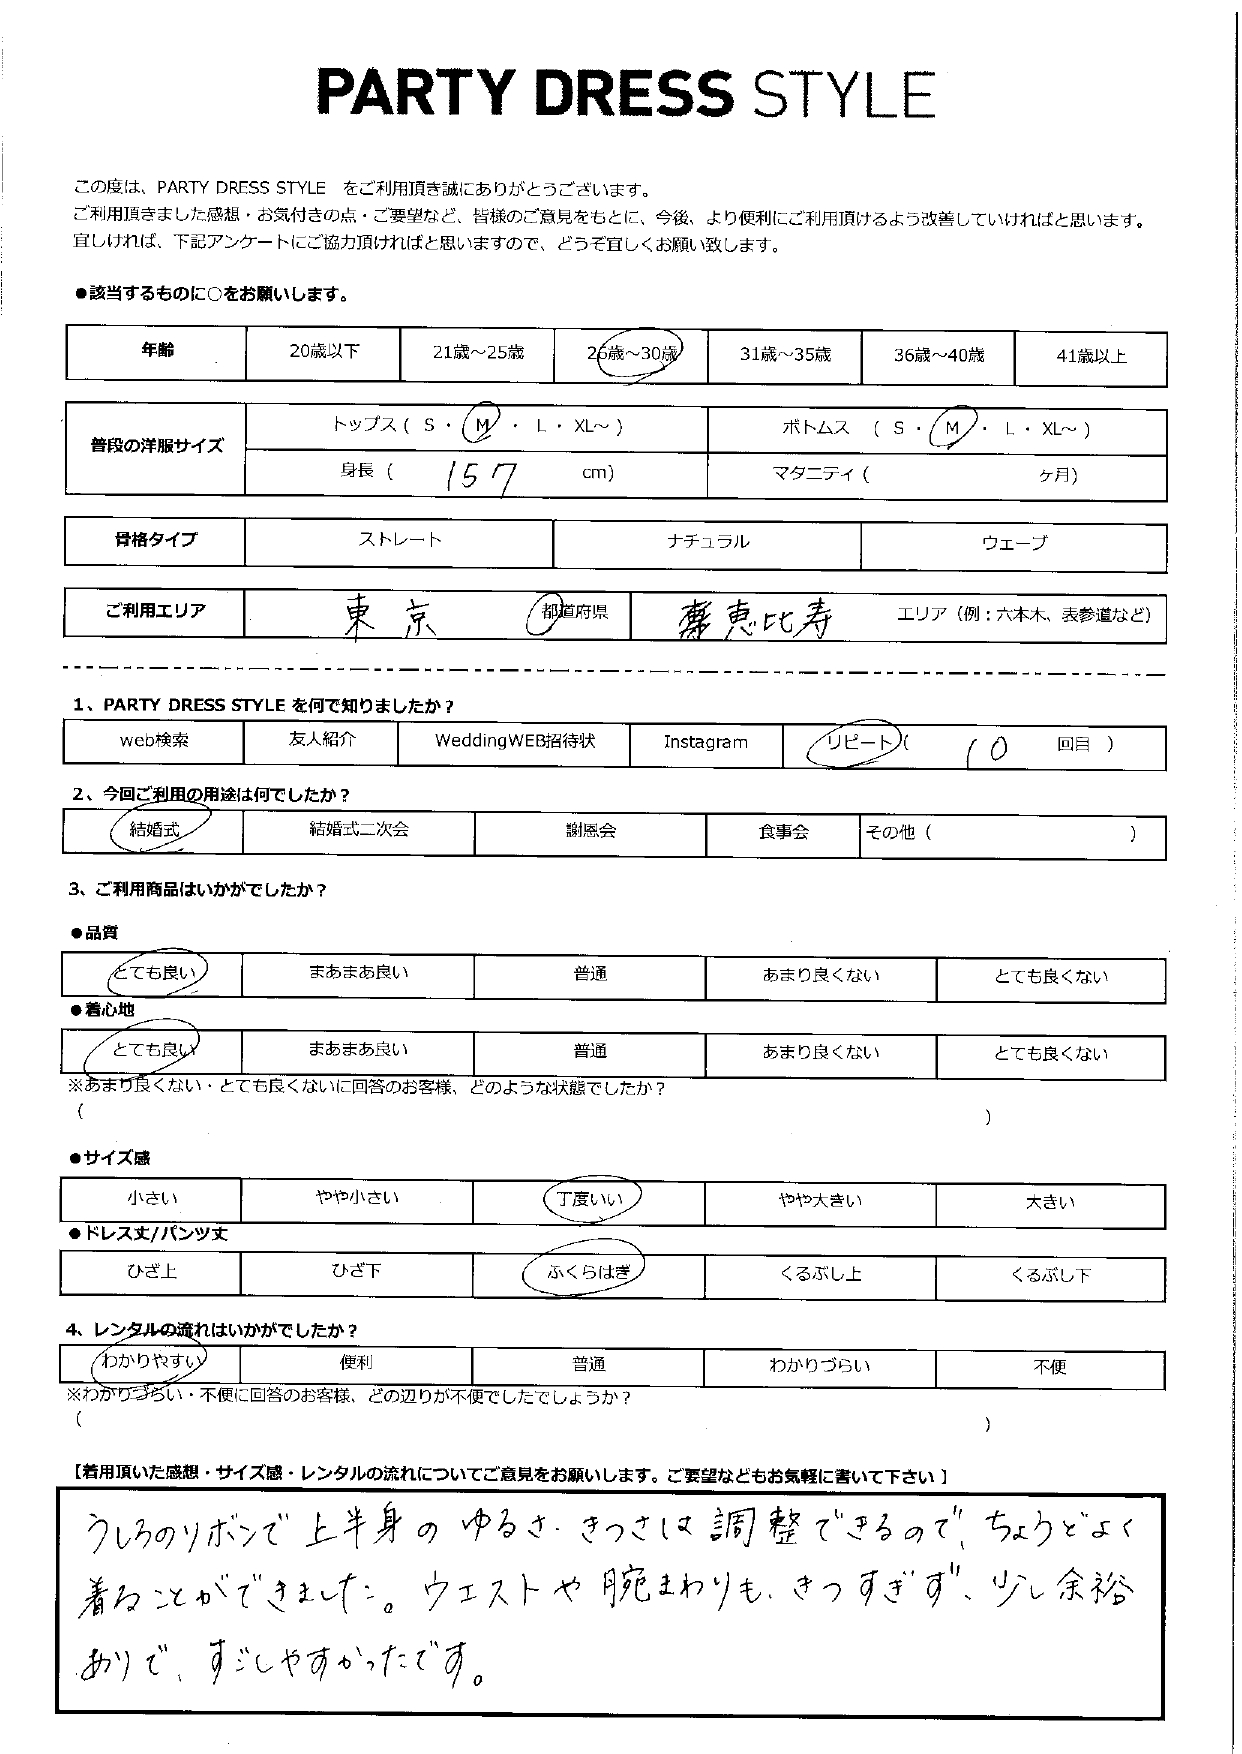 PARTY DRESS STYLE
この度は、PARTY DRESS STYLE をご利用頂き誠にありがとうございます。
ご利用頂きました感想・お気付きの点・ご要望など、皆様のご意見をもとに、今後、より便利にご利用頂けるよう改善していければと思います。
宜しければ、下記アンケートにご協力頂ければと思いますので、どうぞ宜しくお願い致します。
●該当するものに○をお願いします。
年齢 20歳以下 21歳～25歳 26歳～30歳 31歳～35歳 36歳～40歳 41歳以上
普段の洋服サイズ トップス ( S ・ M ・ L ・ XL～ ) ボトムス ( S ・ M ・ L ・ XL～ )
身長 ( 157 cm) マタニティ ( ヶ月)
骨格タイプ ストレート ナチュラル ウェーブ
ご利用エリア 東京 都道府県 恵比寿 エリア（例：六本木、表参道など）
1、PARTY DRESS STYLE を何で知りましたか？
web検索 友人紹介 WeddingWEB招待状 Instagram リピート ( 10 回目 )
2、今回ご利用の用途は何でしたか？
結婚式 結婚式二次会 謝恩会 食事会 その他 ( )
3、ご利用商品はいかがでしたか？
●品質
とても良い まあまあ良い 普通 あまり良くない とても良くない
●着心地
とても良い まあまあ良い 普通 あまり良くない とても良くない
※あまり良くない・とても良くないに回答のお客様、どのような状態でしたか？
( )
●サイズ感
小さい やや小さい 丁度いい やや大きい 大きい
●ドレス丈/パンツ丈
ひざ上 ひざ下 ふくらはぎ くるぶし上 くるぶし下
4、レンタルの流れはいかがでしたか？
わかりやすい 便利 普通 わかりづらい 不便
※わかりづらい・不便に回答のお客様、どの辺りが不便でしたでしょうか？
( )
【着用頂いた感想・サイズ感・レンタルの流れについてご意見をお願いします。ご要望などもお気軽に書いて下さい】
うしろのリボンで上半身のゆるさ・きつさは調整できるので、ちょうどよく
着ることができました。ウエストや腕まわりも、きつすぎず、少し余裕
ありで、すごしやすかったです。